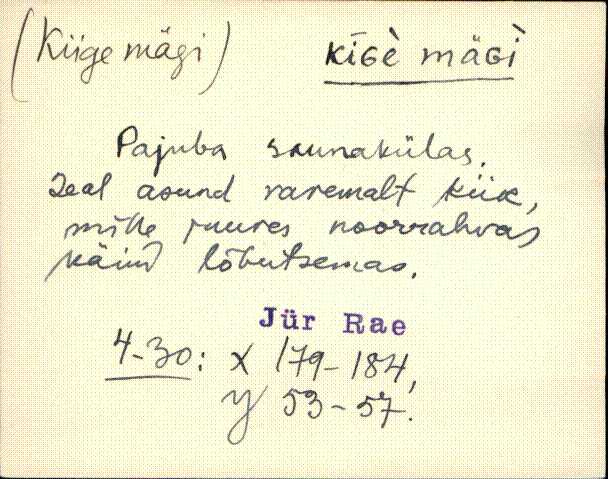 (Kiige mägi)
kīGè mäGì
Pajuba saunakülas.
Seal asund varemalt kiik,
mille juures noorrahvas
käind lõbutsemas.
Jür Rae
4-30: X 179-184,
Y 53-57.